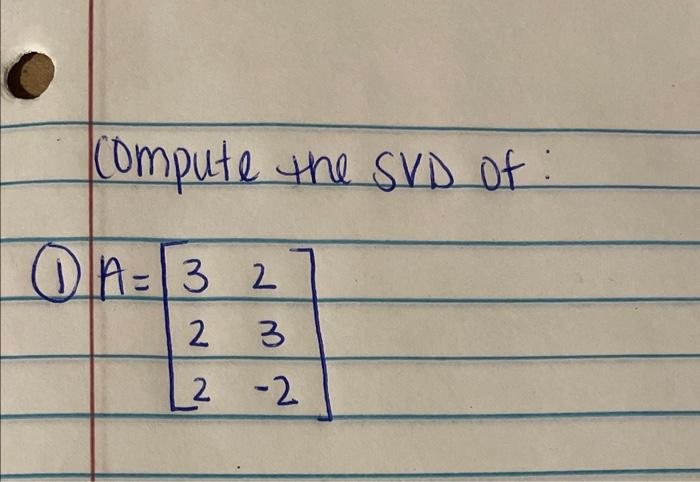 compute the SVD of:
① A = [3 2
2 3
2 -2]